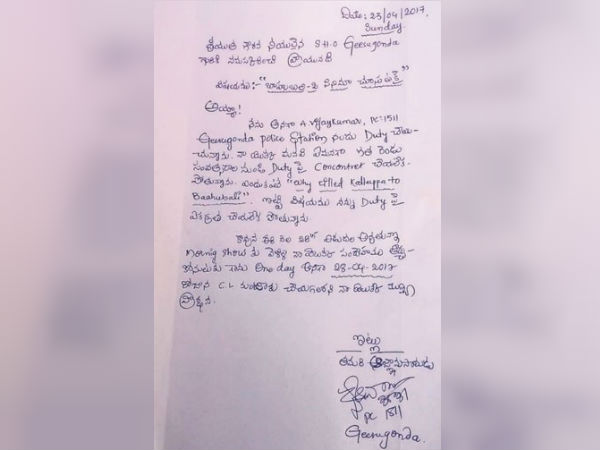 Date: 23/04/2017,
Sunday.
S.H.O Geesugonda
విషయము:- "బాహుబలి-2 సినిమా చూచుటకై"
అయ్యా!
నేను అనగా A. Vijaykumar, PC:1511
Geesugonda Police Station నందు Duty చేయు-
చున్నాను. నా యొక్క మనవి ఏమనగా గత రెండు
సంవత్సరాల నుండి Duty పై Concentret చేయలేక
పోతున్నాను. ఎందుకంటే "Why killed Kattappa to
Baahubali". ఇట్టి విషయము నన్ను Duty పై
ఏకాగ్రత చేయలేక పోతున్నాను
కావున ఈ నెల 28th విడుదల అవుతున్నా
Mornig Show కు వెళ్లి నా యొక్క సందేహము
One day అనగా 28-04-2017
రోజున C.L మంజూరు చేయగలరని నా యొక్క
ఇట్లు
తమరి విధేయుడు
PC 1511
Geesugonda.